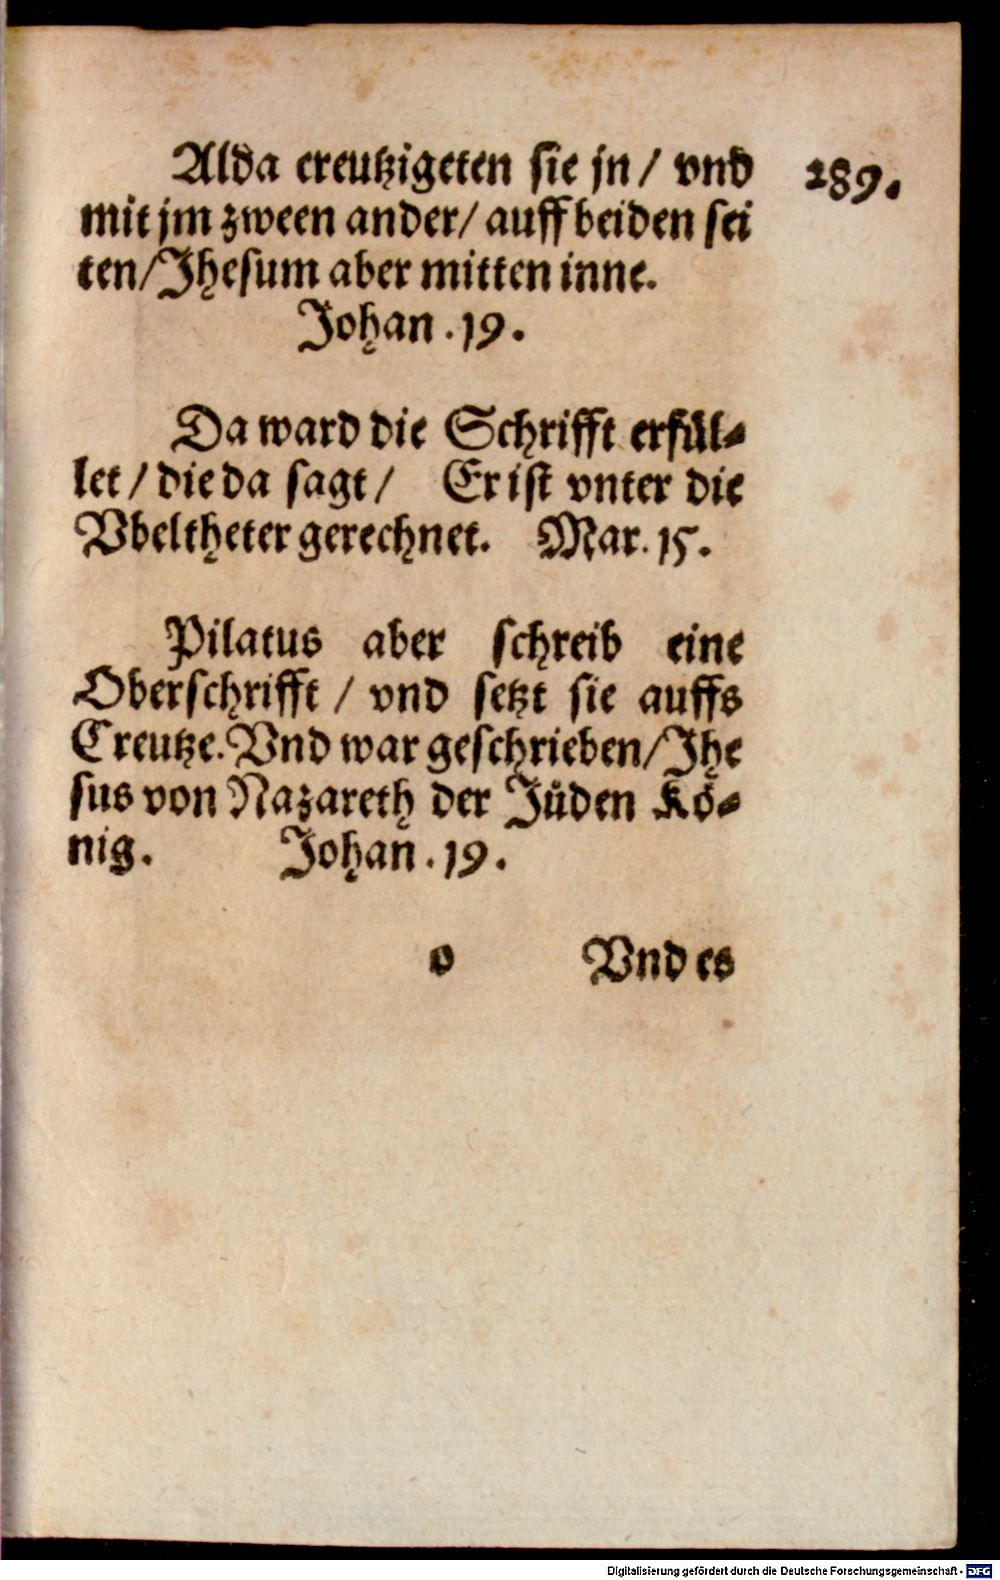 Alda creutzigeten sie jn / vnd
289.
mit jm zween ander / auff beiden sei
ten / Jhesum aber mitten inne.
Johan. 19.
Da ward die Schrifft erfül-
let / die da sagt / Er ist vnter die
Vbeltheter gerechnet. Mar. 15.
Pilatus aber schreib eine
Oberschrifft / vnd setzt sie auffs
Creutze. Vnd war geschrieben / Jhe
sus von Nazareth der Jüden Kö-
nig. Johan. 19.
o Vnd es
Digitalisierung gefördert durch die Deutsche Forschungsgemeinschaft - DFG